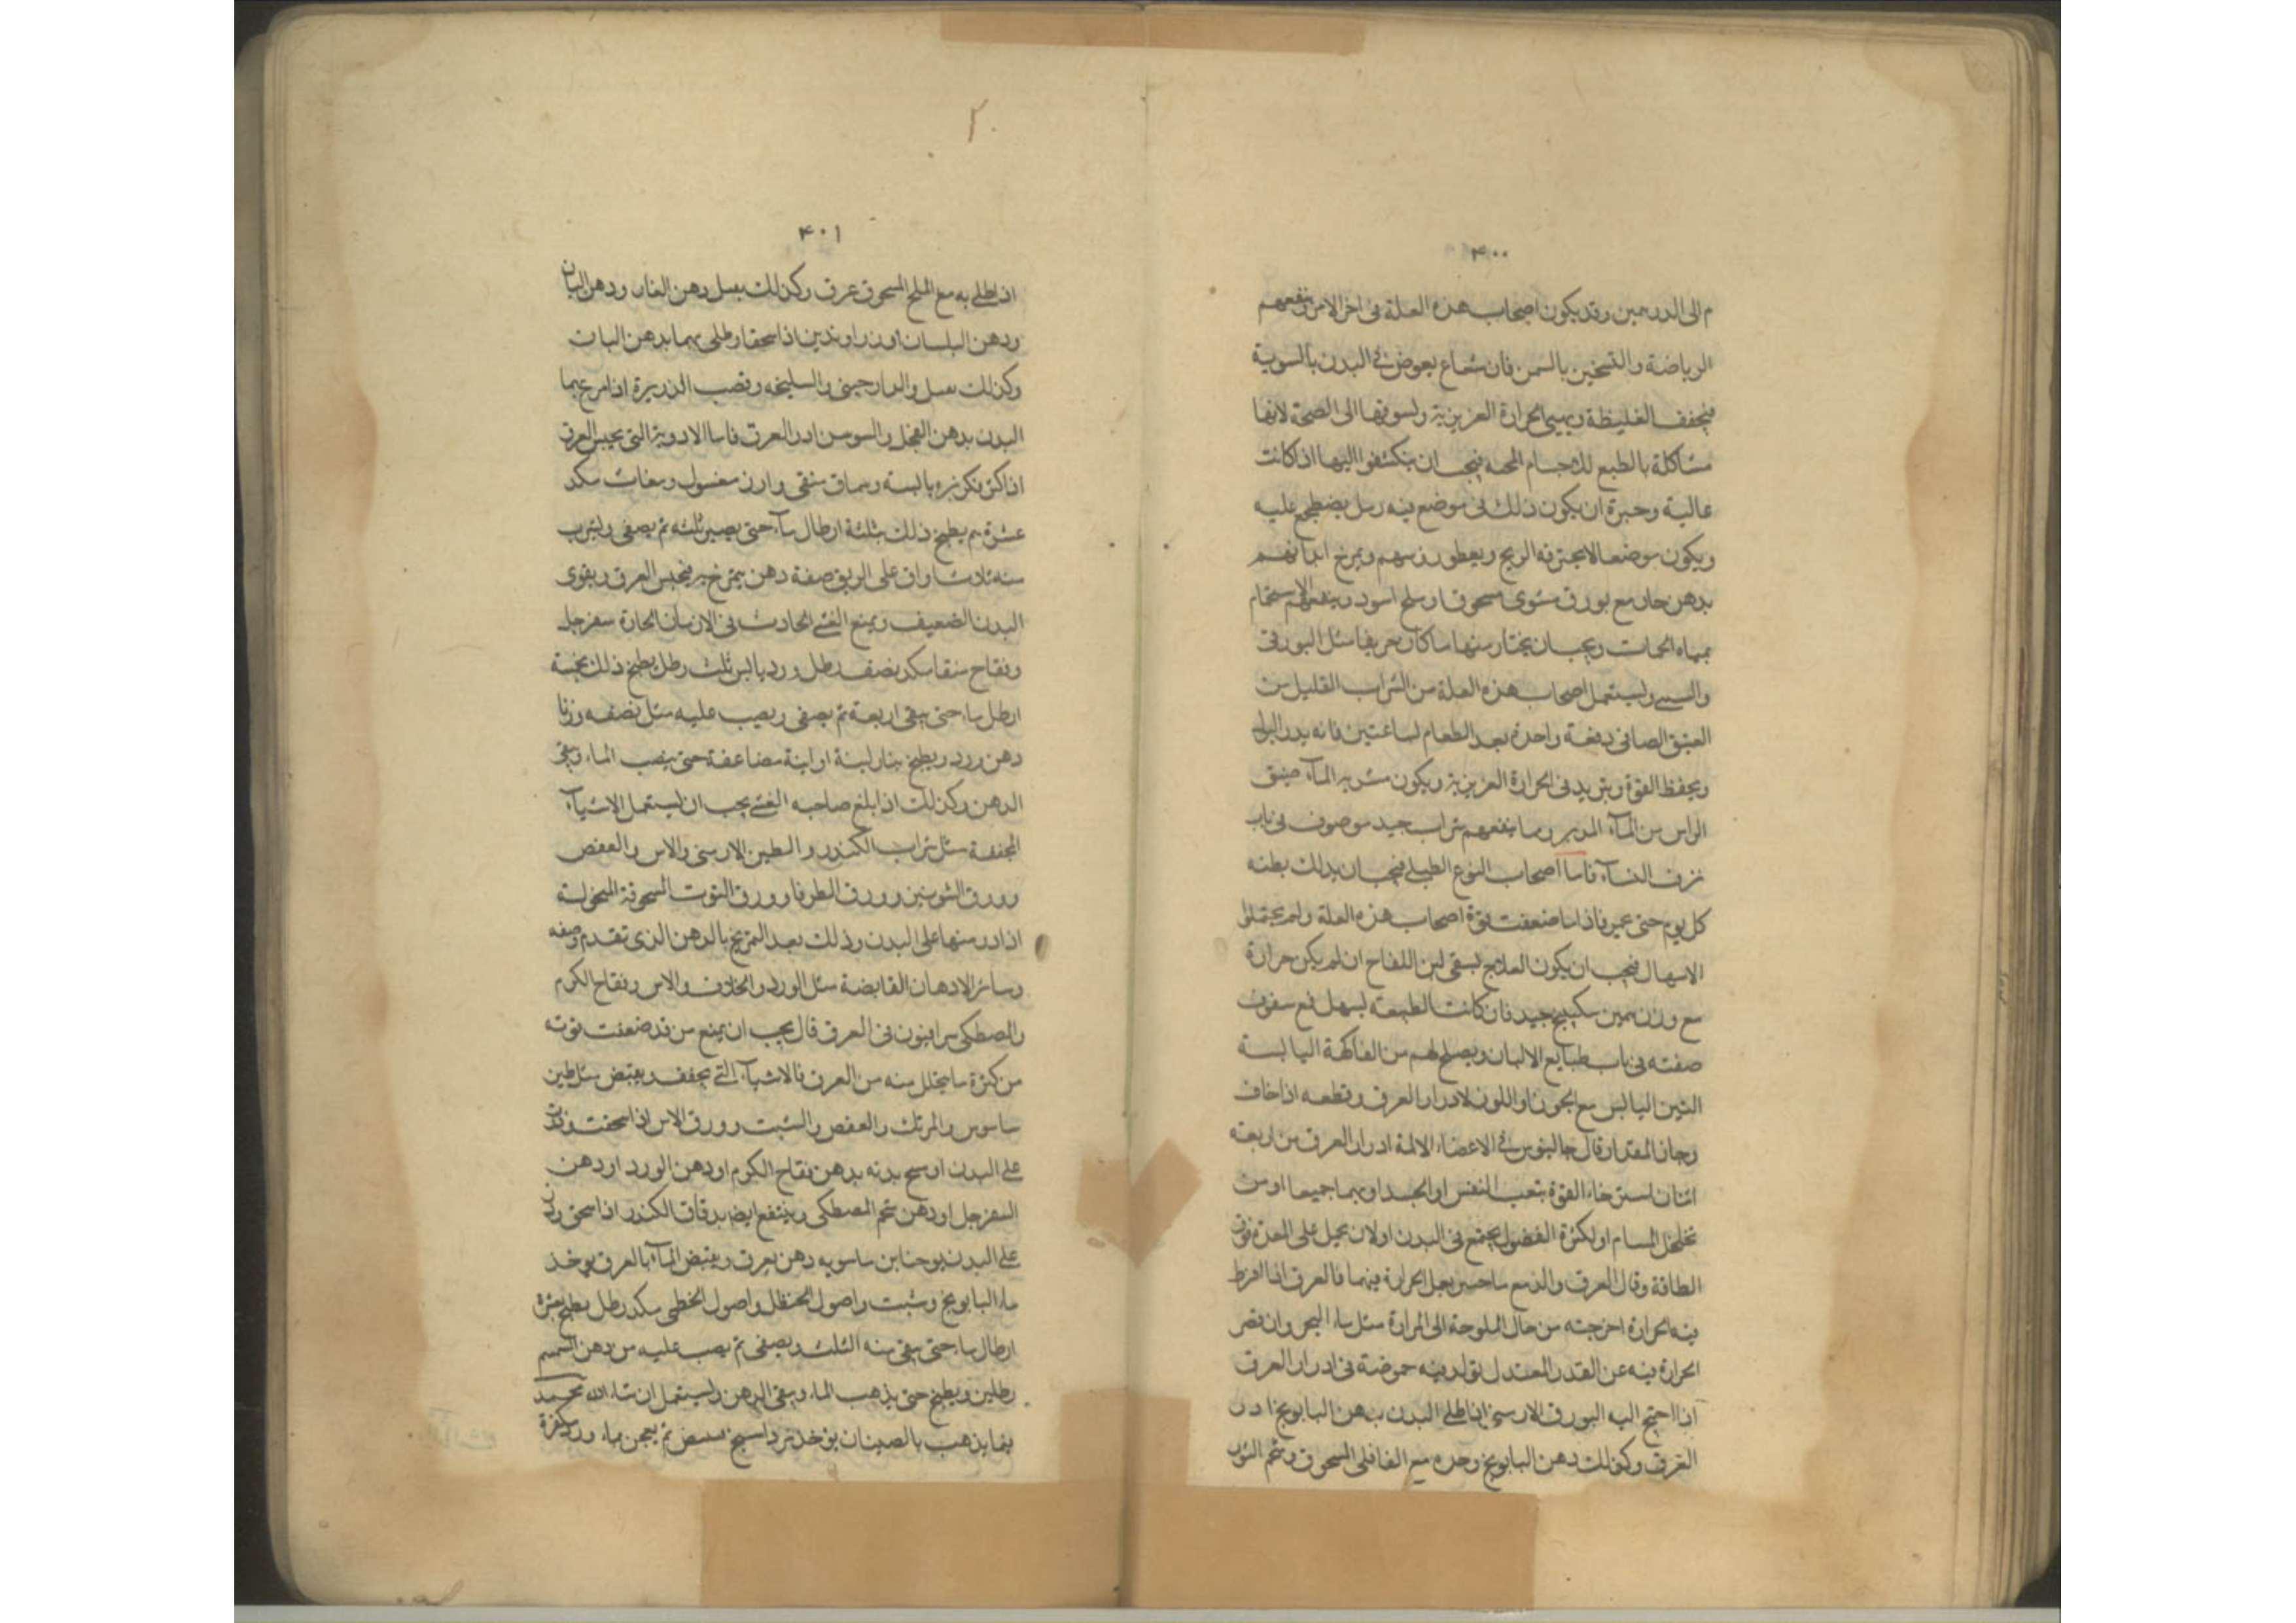 ۴۰۰
م الى الدرهمين وقد يكون اصحاب هذه العلة فى اخر الامر وينفعهم
الرياضة والتسخين بالسمن فان شعاع يعوض فى البدن بالسوية
فيجفف الغليظة ويهيى الحرارة الغريزية ولسوقها الى الصحة لانها
مشاكلة بالطبع للاجسام فيجب ان يكشفوا اليها اذا كانت
عالية وخيرة ان يكون ذلك فى موضع فيه رمل يضطجع عليه
ويكون موضعا لا يجترفه الريح ويعطون رؤسهم ويمرخ ابدانهم
بدهن حار مع بورق مشوى مسحوق او ملح اسود وينفعهم الاستحمام
بمياه الحمات ويجب ان يختار منها ما كان حريفا مثل البورقى
وليستعمل اصحاب هذه العلة من الشراب القليل من
العتيق الصافى دفعة واحدة بعد الطعام لساعتين فانه يدر البول
ويحفظ القوة ويزيد فى الحرارة الغريزية ويكون مشربه الماء ضيق
الراس من الماء المدبر ومما ينفعهم شراب جيد موصوف فى باب
نزف النساء فاما اصحاب النوع الطبلى فيجب ان يدلك بطنه
كل يوم حتى فاذا ما ضعفت قوة اصحاب هذه العلة ولم يحتملوا
الاسهال فيجب ان يكون العلاج لسقى لبن اللقاح ان لم يكن حرارة
مع وزن سكبينج جيد فان كانت الطبيعة لسهل فمع سفوف
صفته فى باب طبايع الالبان ويصلح لهم من الفاكهة اليابسة
التين اليابس مع الجوز او اللوز لادرار العرق وقطعه اذا خاف
وجاز المقدار قال جالينوس فى الاعضاء الالمة ادرار العرق من اربعة
اثنان استرخاء القوة بتعب النفس او الجسد او بهما جميعا او من
تخلخل المسام او لكثرة الفضول يجتمع فى البدن او لان يحيل على المعدة فوق
الطاقة وقال العرق والدمع ماحسن يعمل الحرارة فيهما فالعرق اذا افرط
فيه الحرارة اخرجته من حال الملوحة الى المرارة مثل ماء البحر وان نقص
الحرارة فيه عن القدر المعتدل تولد فيه حموضة فى ادرار العرق
اذا احتيج اليه البورق الارمنى اذا طلى البدن بدهن البابونج ادر
العرق وكذلك دهن البابونج وحده مع الفلفل المسحوق وشحم الثور
۴۰۱
اذ يطلى به مع الملح المسحوق عرق وكذلك يفعل دهن الغار ودهن البان
ودهن البلسان وزراوندين اذا سحقا وطلى بهما بدهن البان
وكذلك يفعل والدارچينى والسليخه وقصب الذريرة اذا مرخ بها
البدن بدهن الفجل والسوسن ادر العرق فاما الادوية التى يحبس العرق
اذا كثر فكزبره يابسة وسماق منقى وارز مغسول
عشرة يطبخ ذلك بثلثة ارطال ماء حتى يصير ثلثه ثم يصفى ويشرب
منه ثلاث اواق على الريق صفة دهن يمرخ به فيحبس العرق ويقوى
البدن الضعيف ويمنع الغشى الحادث فى الازمان الحارة سفرجل
وتفاح منقا مكد نصف رطل ورد يابس ثلث رطل يطبخ ذلك بخمسة
ارطل ماء حتى يبقى اربعة ثم يصفى ويصب عليه مثل نصفه وزنا
دهن ورد ويطبخ بنار لينة او انية مضاعفة حتى ينصب الماء ويبقى
الدهن وكذلك اذا بلغ صاحبه الغشى يجب ان ليستعمل الاشياء
المجففة مثل تراب الكندر والطين الارمنى والاس والعفص
وورق الشوسن وورق الطرفا وورق التوت المسحوقة المنخولة
اذا ذر منها على البدن وذلك بعد التمريخ بالدهن الذى تقدم وصفه
وسائر الادهان القابضة مثل الورد والخلاف والاس وتفاح الكرم
والمصطكى سرافيون فى العرق قال يجب ان يمنع من قد ضعفت قوته
من كثرة ما يتحلل منه من العرق فالاشياء التى يجفف ويقبض مثل طين
ساموس والمرتك والعفص والشبت وورق الاس اذا سحقت وذرت
على البدن او مسح بدنه بدهن تفاح الكرم او دهن الورد او دهن
السفرجل او دهن شحم المصطكى وينتفع ايضا بدقاق الكندر اذا سحق وذر
على البدن يوحنا بن ماسويه دهن يعرق ويقبض الماء بالعرق يوخذ
ماء البابونج وشبت واصول الحنظل واصول الخطمى مكد رطل يطبخ بعشرة
ارطال ماء حتى يبقى منه الثلث ويصفى ثم يصب عليه من دهن السمسم
رطلين ويطبخ حتى يذهب الماء ويبقى الدهن وليستعمل ان شاء الله تع محمد
فيما يذهب بالصنان يوخذ مرداسنج مبيض ثم يعجن بماء ورد